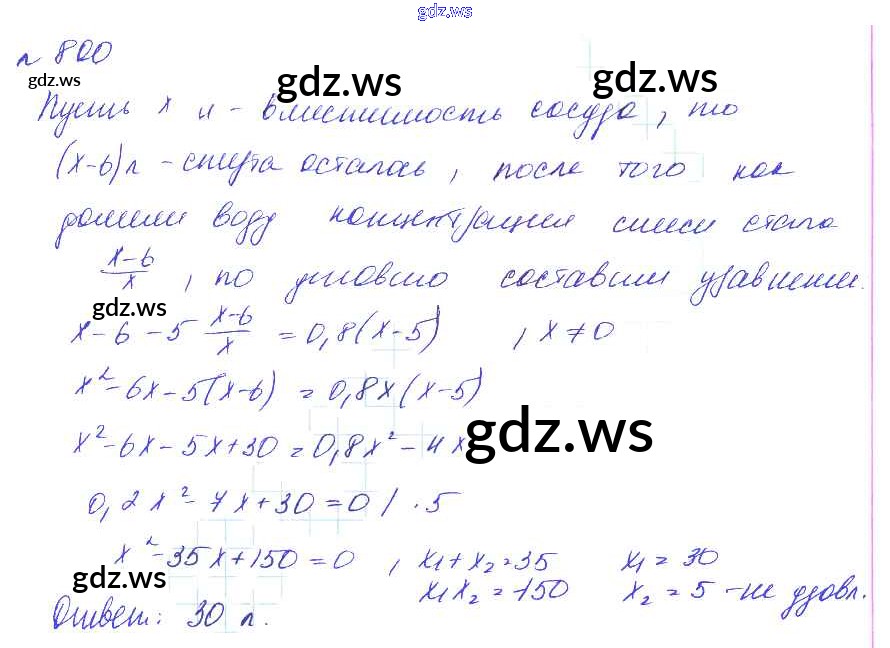 gdz.ws
n 800
gdz.ws gdz.ws gdz.ws
Пусть x л - вместимость сосуда, то
(x-6) л - спирта осталось, после того как
долили воду концентрации смеси стала
x-6/x, по условию составим уравнение.
gdz.ws
x-6-5 x-6/x = 0,8(x-5) , x≠0
x²-6x-5(x-6) = 0,8x(x-5)
x²-6x-5x+30=0,8x²-4x
gdz.ws
0,2x²-7x+30=0 | ·5
x²-35x+150=0 , x₁+x₂=35 x₁=30
gdz.ws
x₁x₂=150 x₂=5 - не удовл.
Ответ: 30 л.